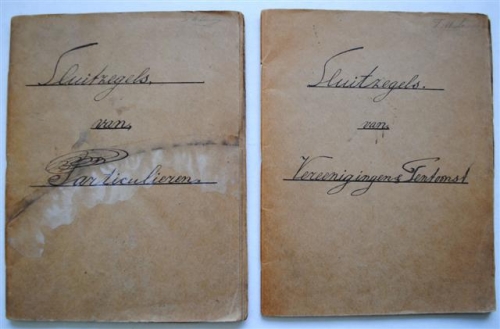 Sluitzegels.
van.
Particulieren.
Sluitzegels.
van.
Vereenigingen &